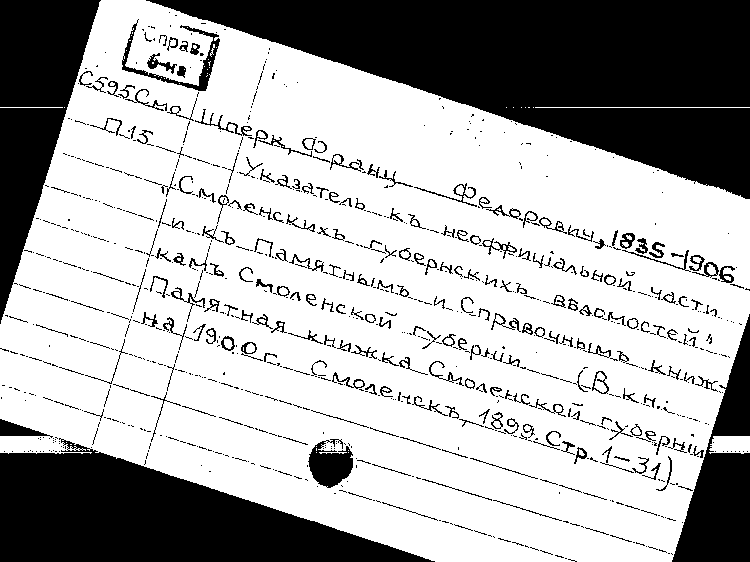 Справ.
б-ка
С595Смо Шперк, Франц Федорович, 1835-1906
П15
Указатель къ неоффиціальной части
„Смоленскихъ губернскихъ вѣдомостей"
и къ Памятнымъ и Справочнымъ книж-
камъ Смоленской губерніи. (В кн.:
Памятная книжка Смоленской губерніи
на 1900г. Смоленскъ, 1899. Стр. 1-31)